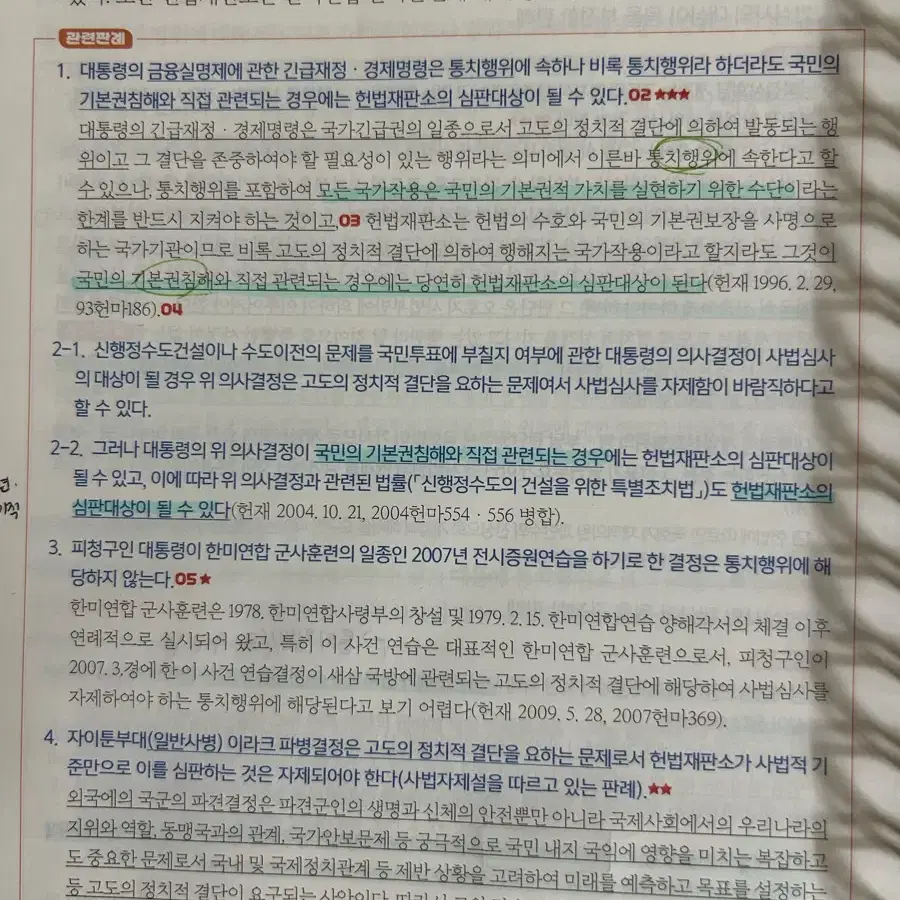 관련판례
1. 대통령의 금융실명제에 관한 긴급재정 · 경제명령은 통치행위에 속하나 비록 통치행위라 하더라도 국민의
기본권침해와 직접 관련되는 경우에는 헌법재판소의 심판대상이 될 수 있다.02 ★★★
대통령의 긴급재정 · 경제명령은 국가긴급권의 일종으로서 고도의 정치적 결단에 의하여 발동되는 행
위이고 그 결단을 존중하여야 할 필요성이 있는 행위라는 의미에서 이른바 통치행위에 속한다고 할
수 있으나, 통치행위를 포함하여 모든 국가작용은 국민의 기본권적 가치를 실현하기 위한 수단이라는
한계를 반드시 지켜야 하는 것이고,03 헌법재판소는 헌법의 수호와 국민의 기본권보장을 사명으로
하는 국가기관이므로 비록 고도의 정치적 결단에 의하여 행해지는 국가작용이라고 할지라도 그것이
국민의 기본권침해와 직접 관련되는 경우에는 당연히 헌법재판소의 심판대상이 된다(헌재 1996. 2. 29,
93헌마186).04
2-1. 신행정수도건설이나 수도이전의 문제를 국민투표에 부칠지 여부에 관한 대통령의 의사결정이 사법심사
의 대상이 될 경우 위 의사결정은 고도의 정치적 결단을 요하는 문제여서 사법심사를 자제함이 바람직하다고
할 수 있다.
2-2. 그러나 대통령의 위 의사결정이 국민의 기본권침해와 직접 관련되는 경우에는 헌법재판소의 심판대상이
될 수 있고, 이에 따라 위 의사결정과 관련된 법률(「신행정수도의 건설을 위한 특별조치법」)도 헌법재판소의
심판대상이 될 수 있다(헌재 2004. 10. 21, 2004헌마554 · 556 병합).
3. 피청구인 대통령이 한미연합 군사훈련의 일종인 2007년 전시증원연습을 하기로 한 결정은 통치행위에 해
당하지 않는다.05 ★
한미연합 군사훈련은 1978. 한미연합사령부의 창설 및 1979. 2. 15. 한미연합연습 양해각서의 체결 이후
연례적으로 실시되어 왔고, 특히 이 사건 연습은 대표적인 한미연합 군사훈련으로서, 피청구인이
2007. 3.경에 한 이 사건 연습결정이 새삼 국방에 관련되는 고도의 정치적 결단에 해당하여 사법심사를
자제하여야 하는 통치행위에 해당된다고 보기 어렵다(헌재 2009. 5. 28, 2007헌마369).
4. 자이툰부대(일반사병) 이라크 파병결정은 고도의 정치적 결단을 요하는 문제로서 헌법재판소가 사법적 기
준만으로 이를 심판하는 것은 자제되어야 한다(사법자제설을 따르고 있는 판례).★★
외국에의 국군의 파견결정은 파견군인의 생명과 신체의 안전뿐만 아니라 국제사회에서의 우리나라의
지위와 역할, 동맹국과의 관계, 국가안보문제 등 궁극적으로 국민 내지 국익에 영향을 미치는 복잡하고
도 중요한 문제로서 국내 및 국제정치관계 등 제반 상황을 고려하여 미래를 예측하고 목표를 설정하는
등 고도의 정치적 결단이 요구되는 사안이다.